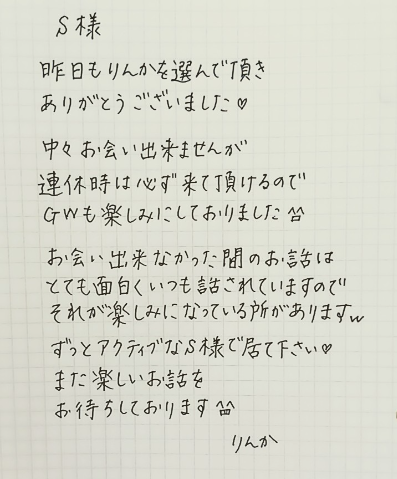 S様
昨日もりんかを選んで頂き
ありがとうございました♡
中々お会い出来ませんが
連休時は必ず来て頂けるので
GWも楽しみにしておりました^^
お会い出来なかった間のお話は
とても面白くいつも話されていますので
それが楽しみになっている所がありますw
ずっとアクティブなS様で居て下さい♡
また楽しいお話を
お待ちしております^^
りんか